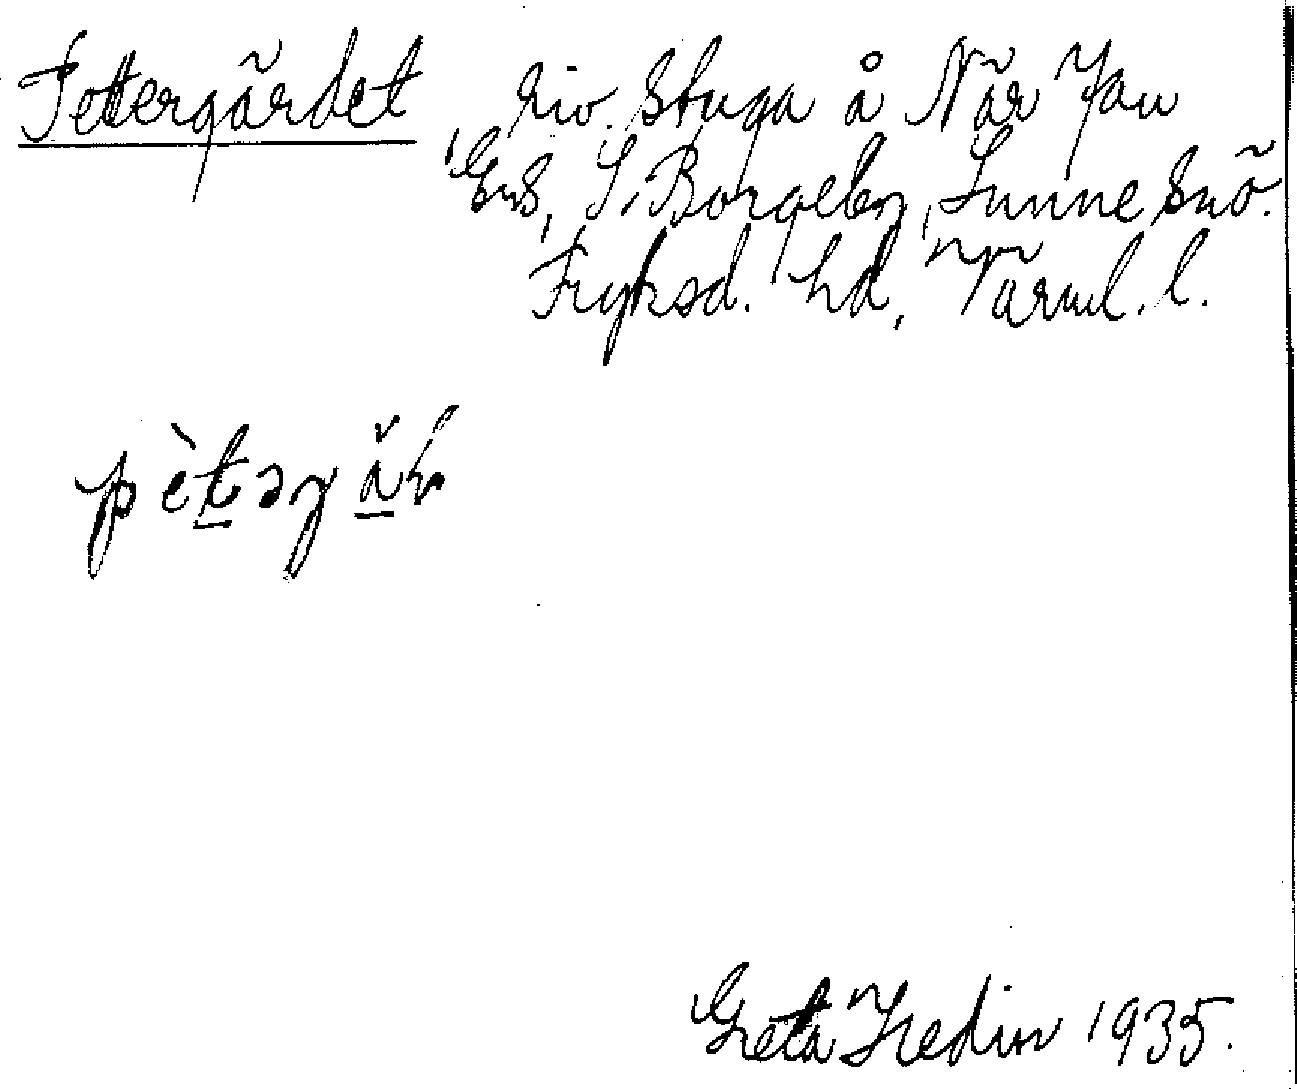 Pettergärdet riv. stuga å När Jan
Ers, S. Borgeby, Sunne snö.
Fryksd. hd, Värml. l.
pètəgäɽ
Greta Hedin 1935.